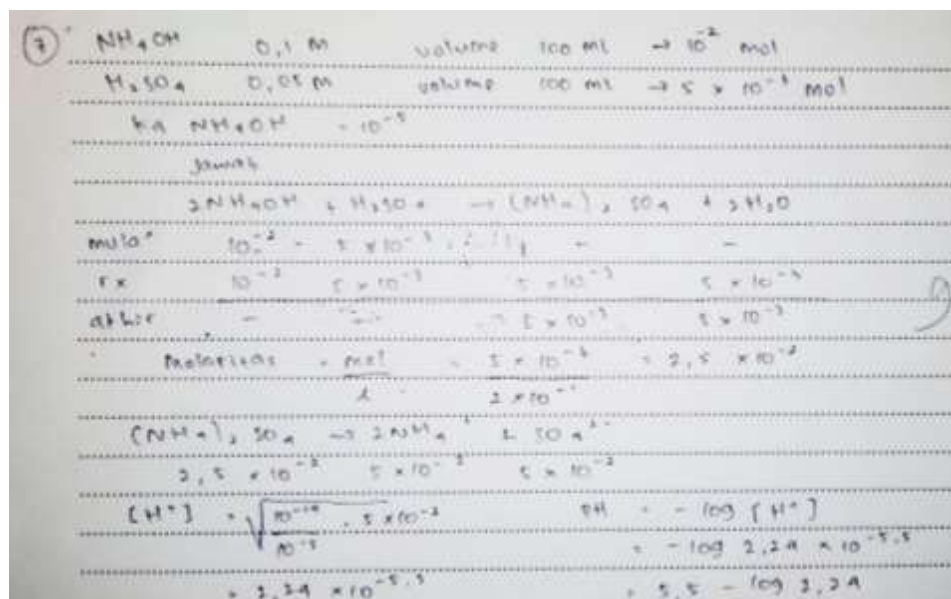 7 NH4OH 0,1 M volume 100 ml → 10^-2 mol
H2SO4 0,05 M volume 100 ml → 5 × 10^-3 mol
NH4OH = 10^-5
Jawab
2NH4OH + H2SO4 → (NH4)2 SO4 + 2H2O
mula² 10^-2 5 × 10^-3 - -
rx 10^-2 5 × 10^-3 5 × 10^-3 5 × 10^-3
akhir - - 5 × 10^-3 5 × 10^-3
Molaritas = mol = 5 × 10^-3 = 2,5 × 10^-2
l 2 × 10^-1
(NH4)2 SO4 → 2NH4+ + SO4 2-
2,5 × 10^-2 5 × 10^-2 5 × 10^-2
[H+] = √ 10^-14 . 5 × 10^-2 PH = - log [H+]
10^-5 = - log 2,24 × 10^-5,5
= 2,24 × 10^-5,5 = 5,5 - log 2,24